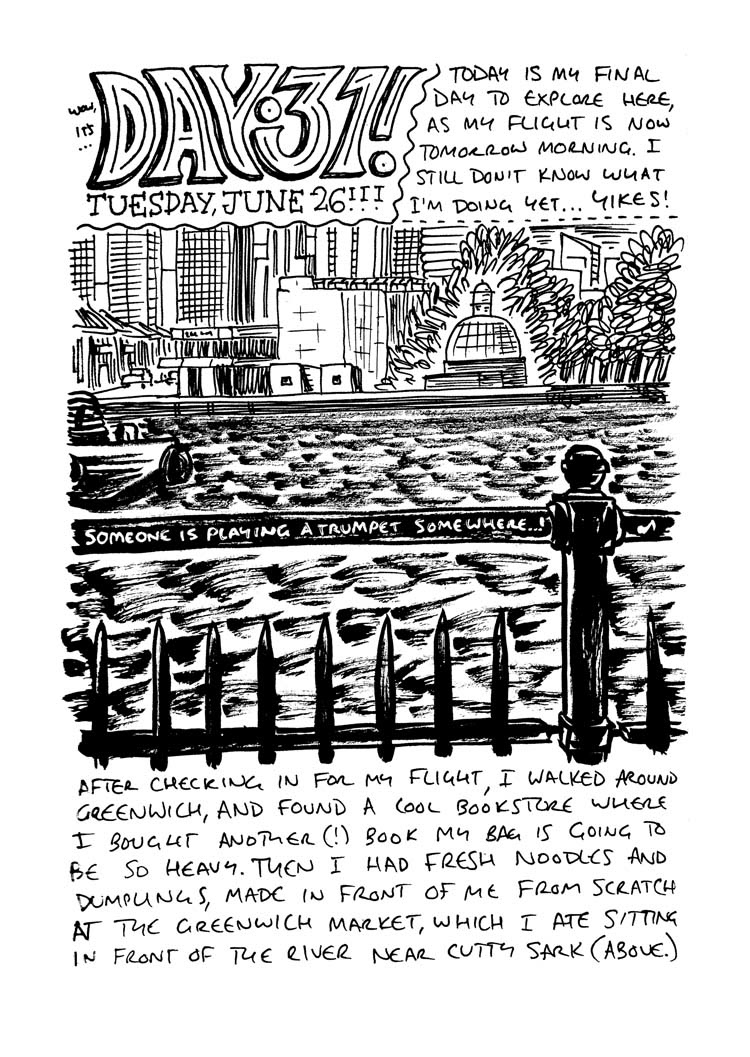 WOW,
IT'S
...
DAY:31!!
TUESDAY, JUNE 26!!!
TODAY IS MY FINAL
DAY TO EXPLORE HERE,
AS MY FLIGHT IS NOW
TOMORROW MORNING. I
STILL DON'T KNOW WHAT
I'M DOING YET... YIKES!
SOMEONE IS PLAYING A TRUMPET SOMEWHERE...!
AFTER CHECKING IN FOR MY FLIGHT, I WALKED AROUND
GREENWICH, AND FOUND A COOL BOOKSTORE WHERE
I BOUGHT ANOTHER (!) BOOK MY BAG IS GOING TO
BE SO HEAVY. THEN I HAD FRESH NOODLES AND
DUMPLINGS, MADE IN FRONT OF ME FROM SCRATCH
AT THE GREENWICH MARKET, WHICH I ATE SITTING
IN FRONT OF THE RIVER NEAR CUTTY SARK (ABOVE.)